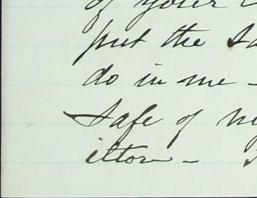 of your
put the sa
do in me -
Safe of my
ittor -